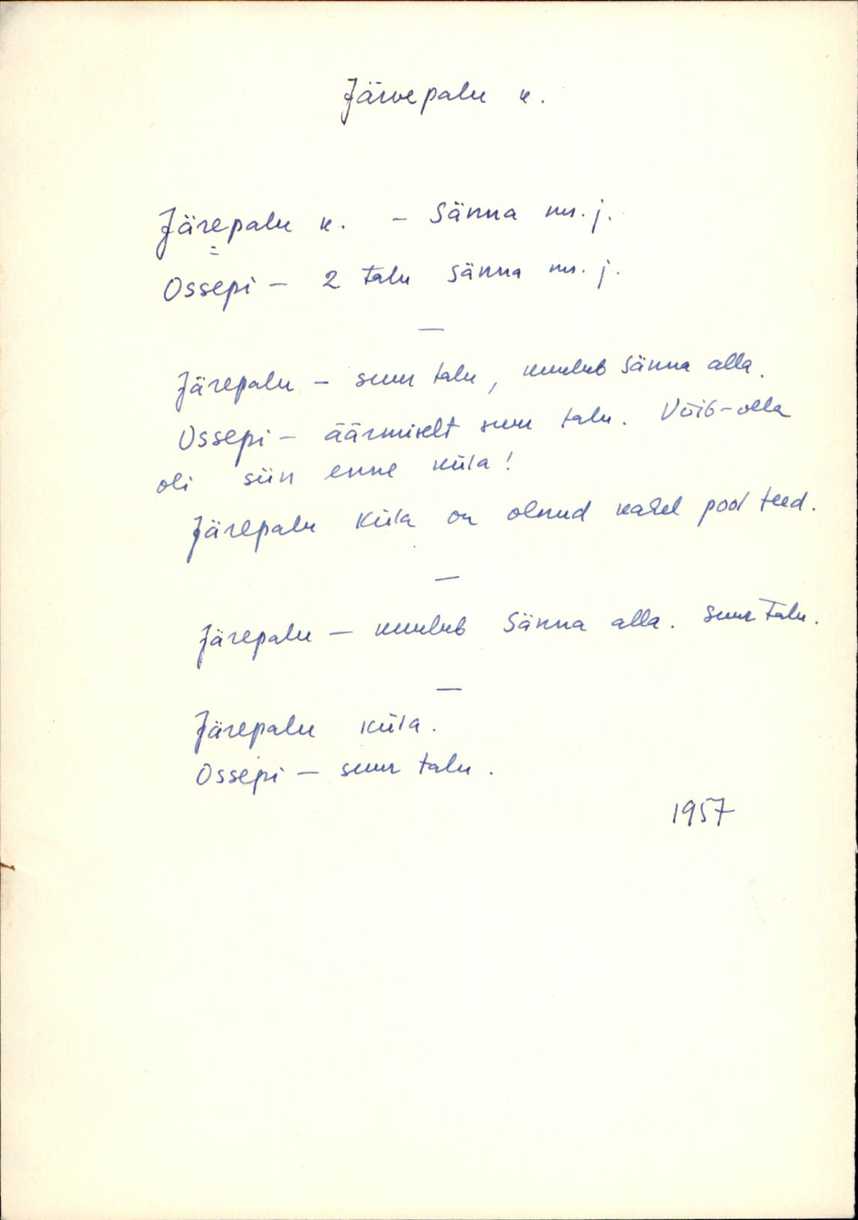 Järvepalu k.
Järepalu k. – Sänna mõ. j.
Ossepi – 2 talu Sänna mõ. j.
—
Järepalu – suur talu, kuulub Sänna alla.
Ossepi – äärmiselt suur talu. Võib-olla
oli siin enne küla!
Järepalu küla on olnud kahel pool teed.
—
Järepalu – kuulub Sänna alla. Suur talu.
—
Järepalu küla.
Ossepi – suur talu.
1957